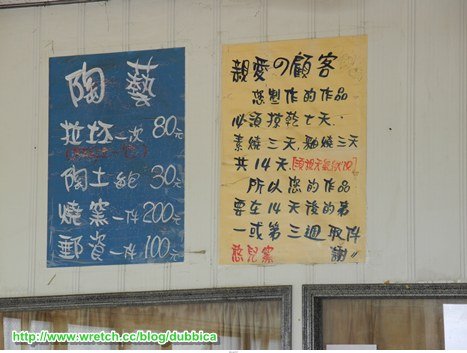 陶藝
拉坯一次 80元
陶土包 30元
燒窯一件 200元
郵資一件 100元
親愛の顧客
您製作的作品
必須掠乾七天.
素燒三天.釉燒三天
共14天.
所以您的作品
要在14天後的第
一或第三週取件
謝〃
http://www.wretch.cc/blog/dubbica